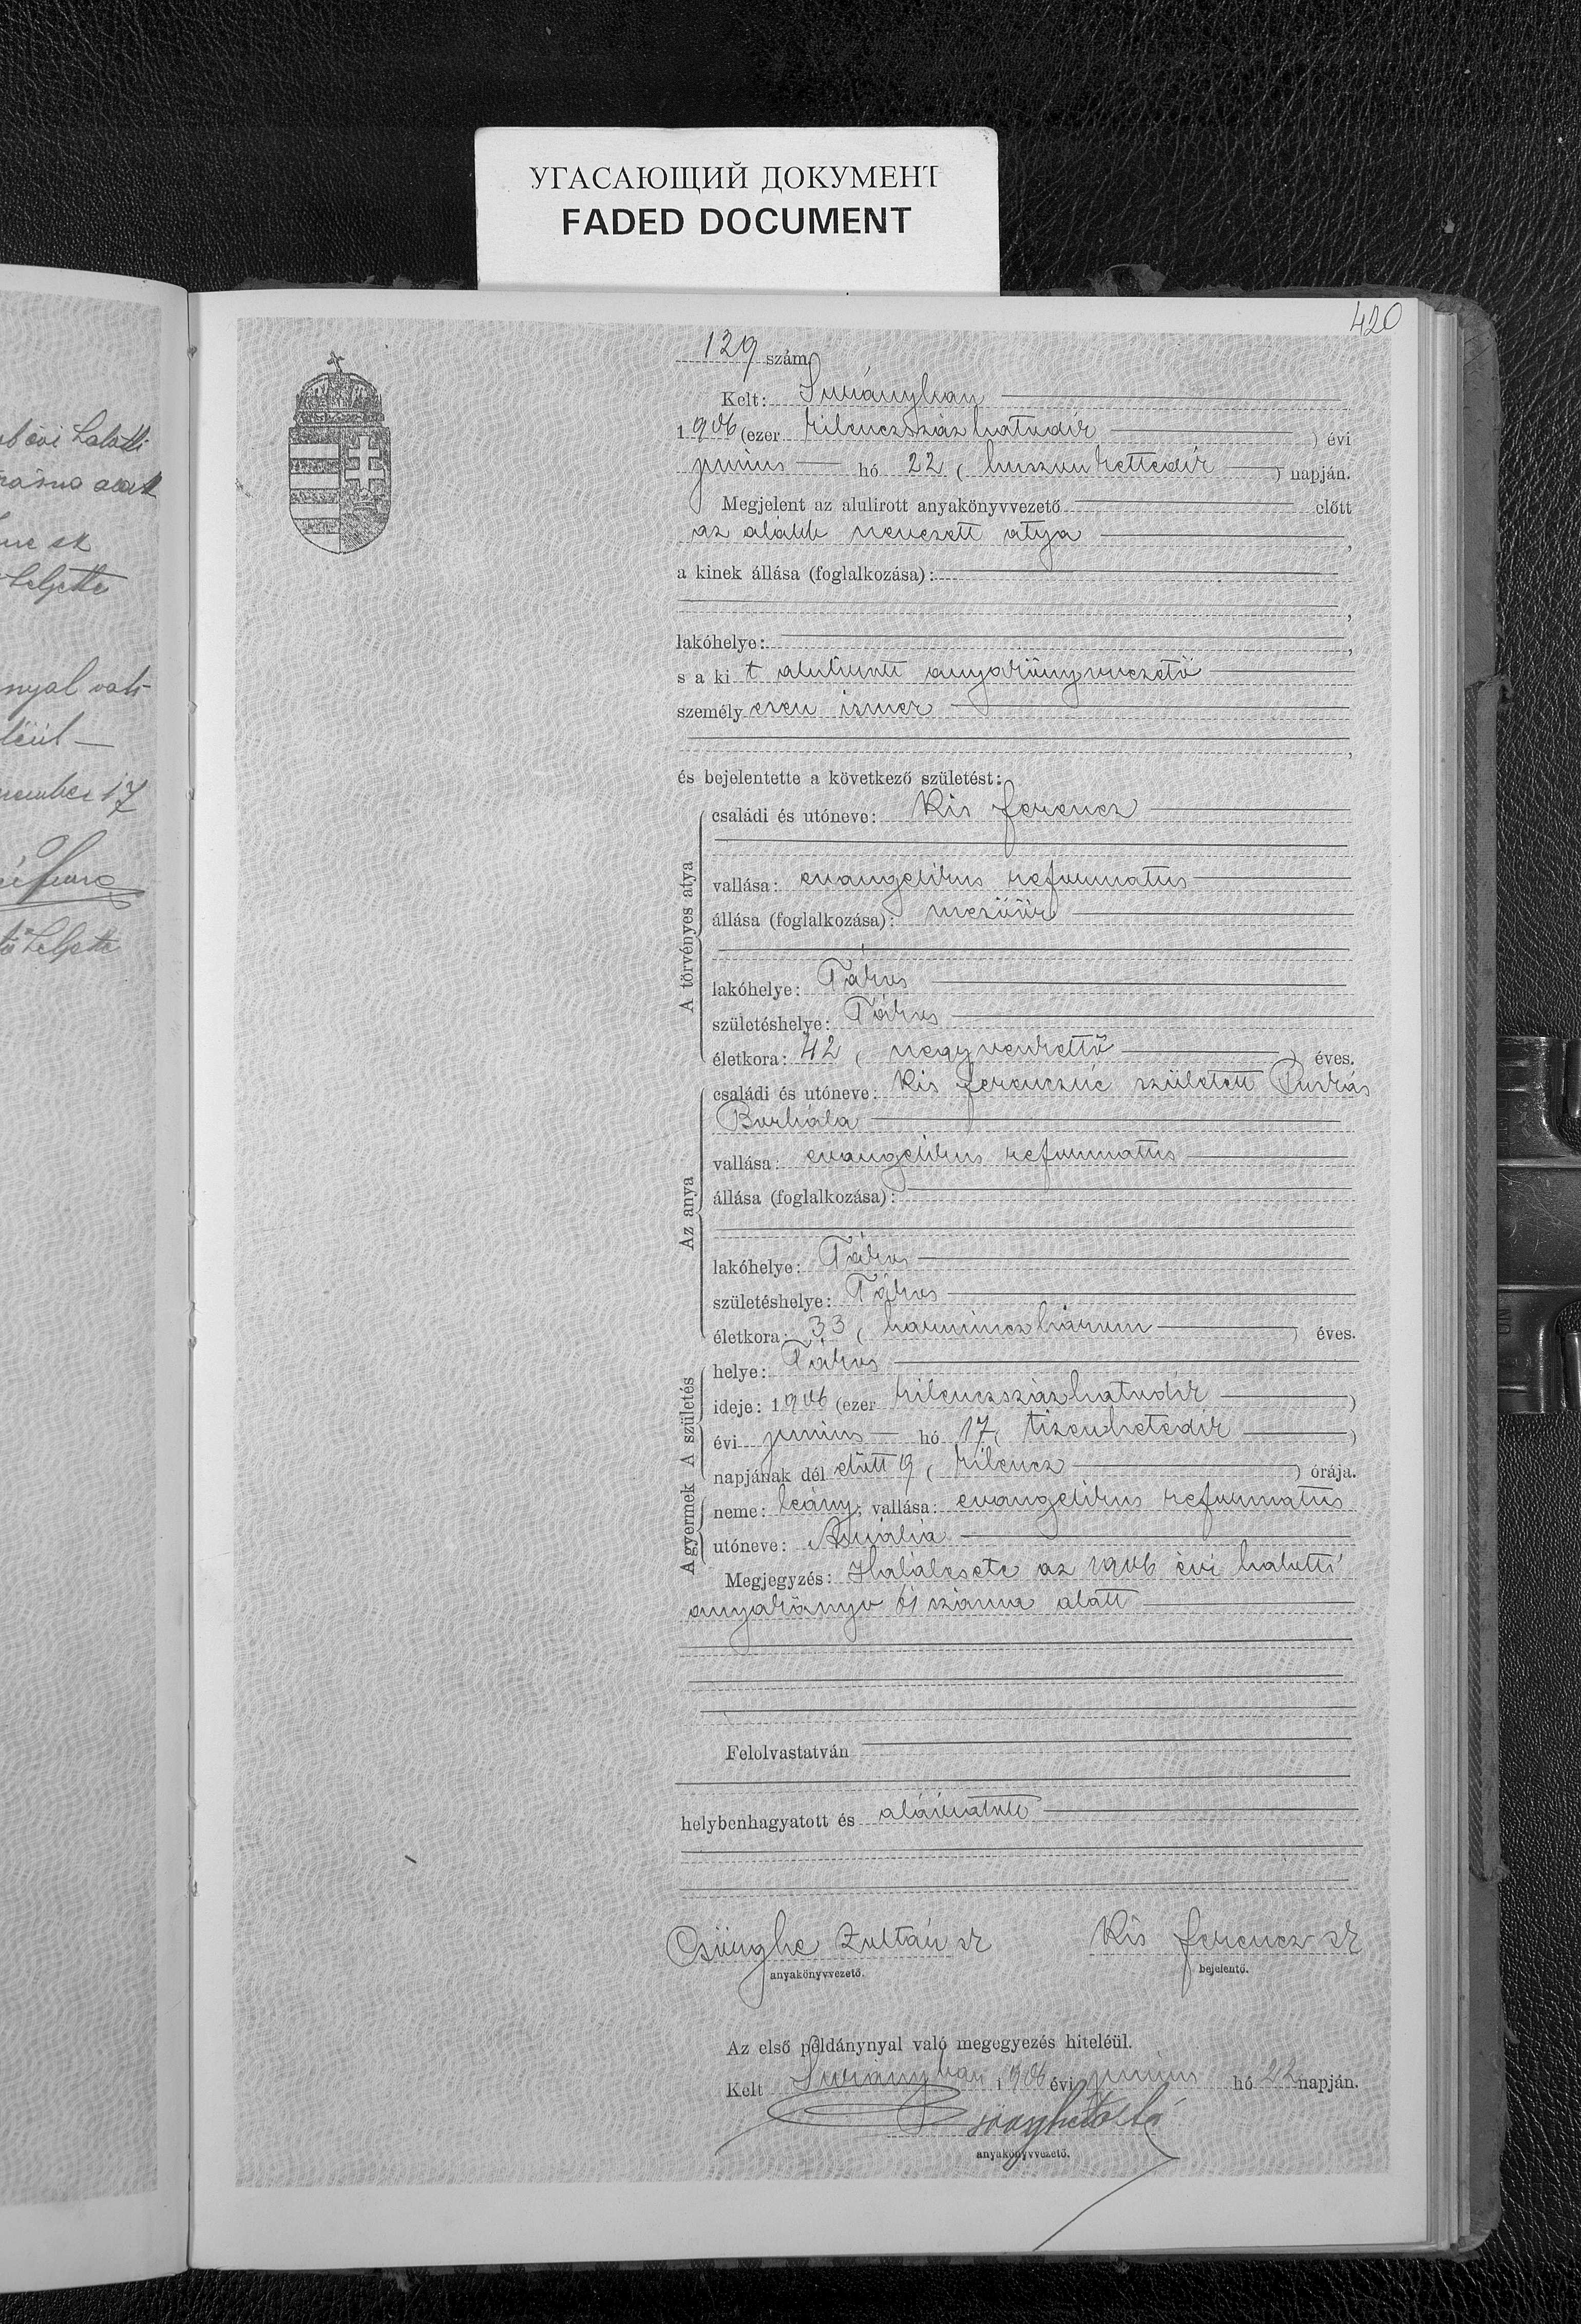 УГАСАЮЩИЙ ДОКУМЕНТ
FADED DOCUMENT
420
129 szám
Kelt: Surányban
1906 (ezer kilenczszázhatodik) évi
junius hó 22 (huszonkettedik) napján.
Megjelent az alulirott anyakönyvvezető előtt
az alább nevezett atya,
a kinek állása (foglalkozása):
,
lakóhelye: ,
s a kit alulirott anyakönyvvezető
személyesen ismer
,
és bejelentette a következő születést:
A törvényes atya
családi és utóneve: Kis Ferencz
vallása: evangelikus reformatus
állása (foglalkozása): mezőőr
lakóhelye: Tákos
születéshelye: Tákos
életkora: 42 (negyvenkettő) éves.
Az anya
családi és utóneve: Kis Ferenczné született Puskás
Borbála
vallása: evangelikus reformatus
állása (foglalkozása):
lakóhelye: Tákos
születéshelye: Tákos
életkora: 33 (harminczhárom) éves.
A születés
helye: Tákos
ideje: 1906 (ezer kilenczszázhatodik)
évi junius hó 17 (tizenhetedik)
napjának dél előtt 9 (kilencz) órája.
A gyermek
neme: leány; vallása: evangelikus reformatus
utóneve: Amália
Megjegyzés: Halálesete az 1906 évi halotti
anyakönyv 61 száma alatt
Felolvastatván
helybenhagyatott és aláiratott
Csönghe Zoltán sk Kis Ferencz sk
anyakönyvvezető. bejelentő.
Az első példánynyal való megegyezés hiteléül.
Kelt Surányban 1906 évi junius hó 22 napján.
anyakönyvvezető.